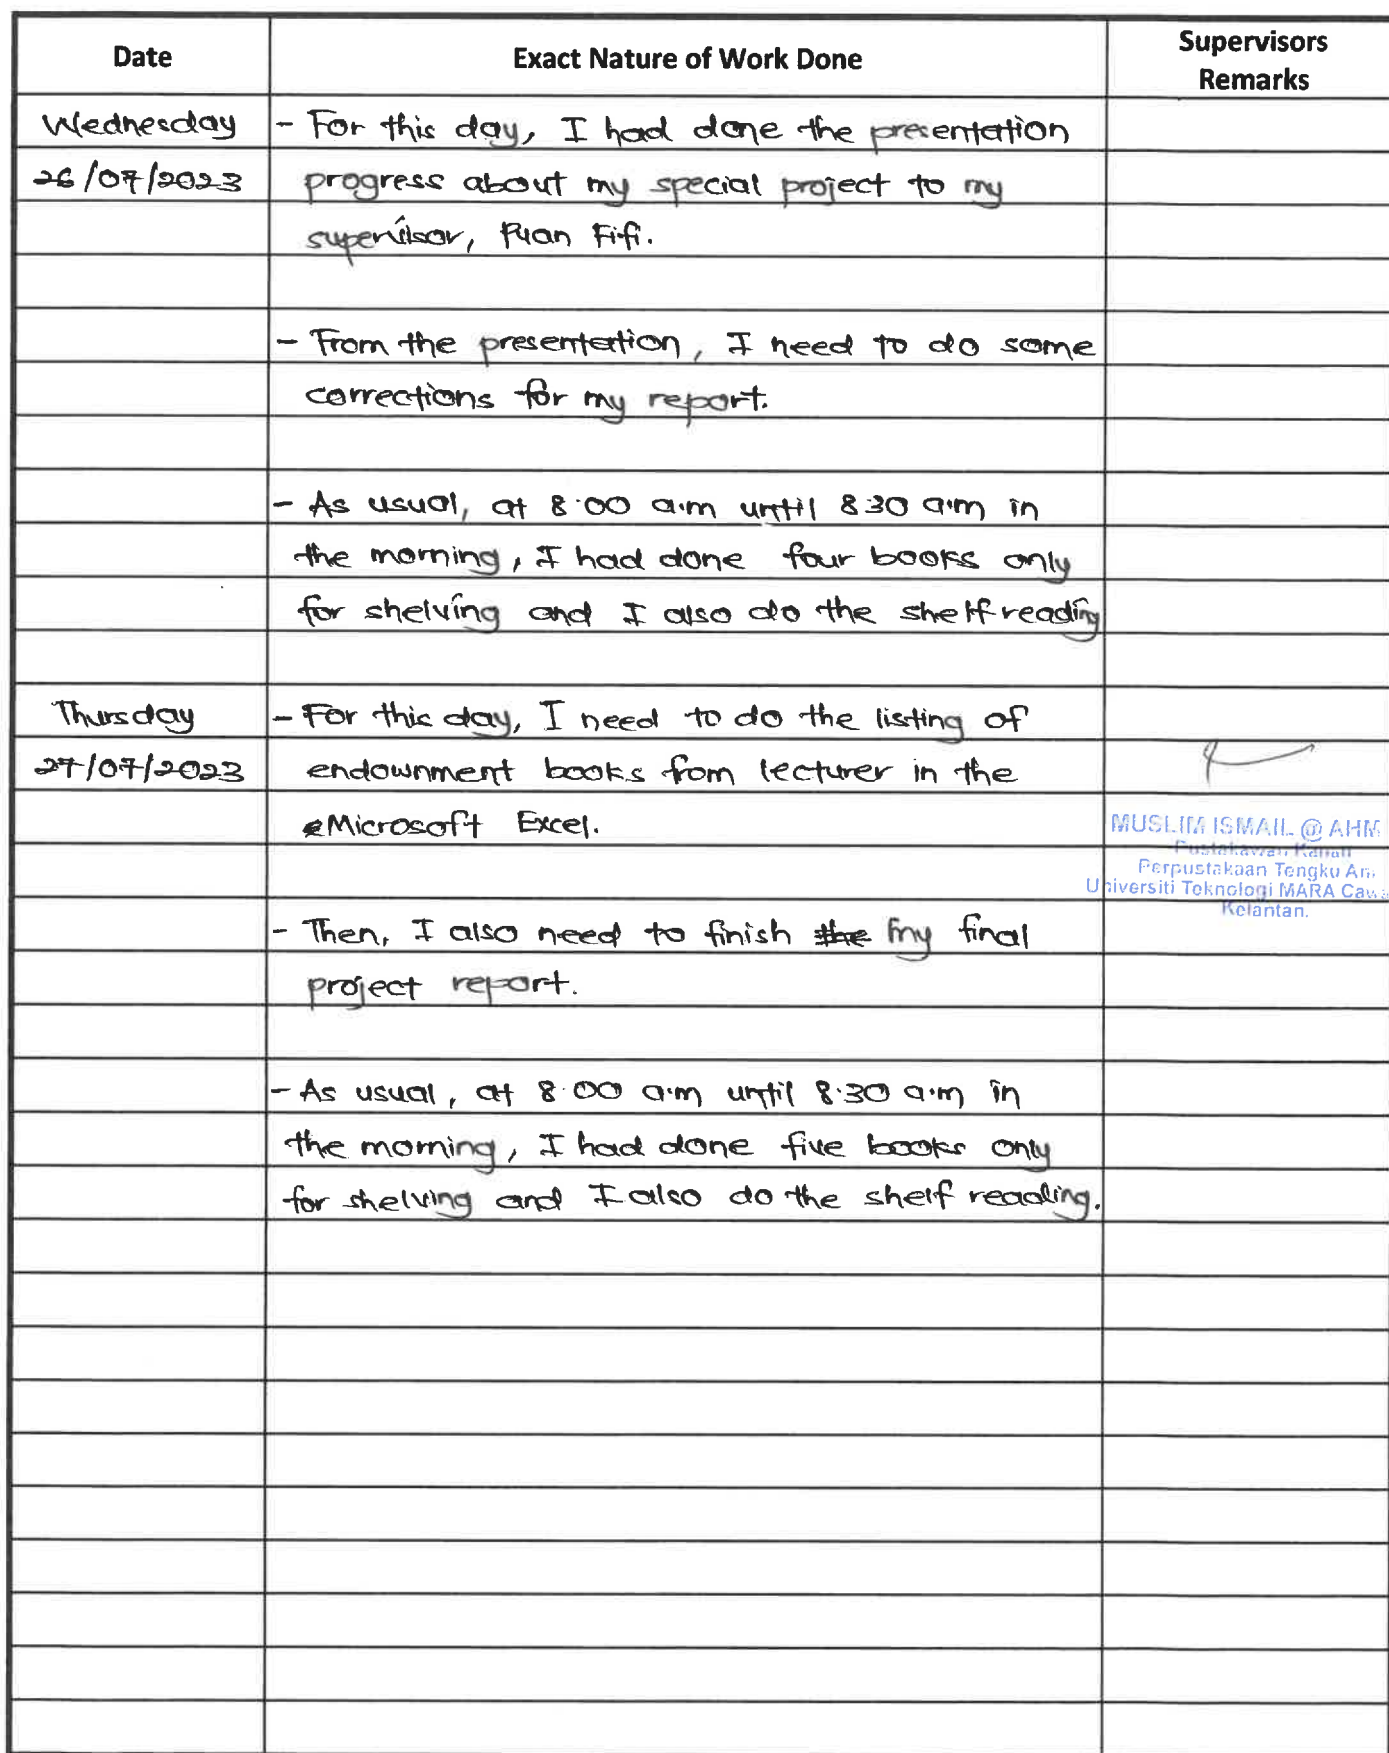 Date Exact Nature of Work Done Supervisors
Remarks
Wednesday - For this day, I had done the presentation
26/07/2023 progress about my special project to my
supervisor, Puan Fifi.
- From the presentation, I need to do some
corrections for my report.
- As usual, at 8.00 a.m until 8.30 a.m in
the morning, I had done four books only
for shelving and I also do the shelf reading
Thursday - For this day, I need to do the listing of
27/07/2023 endownment books from lecturer in the
Microsoft Excel.
MUSLIM ISMAIL @ AHM
Pustakawan Kanan
Perpustakaan Tengku An
Universiti Teknologi MARA Cawa
Kelantan.
- Then, I also need to finish the my final
project report.
- As usual, at 8.00 a.m until 8.30 a.m in
the morning, I had done five books only
for shelving and I also do the shelf reading.